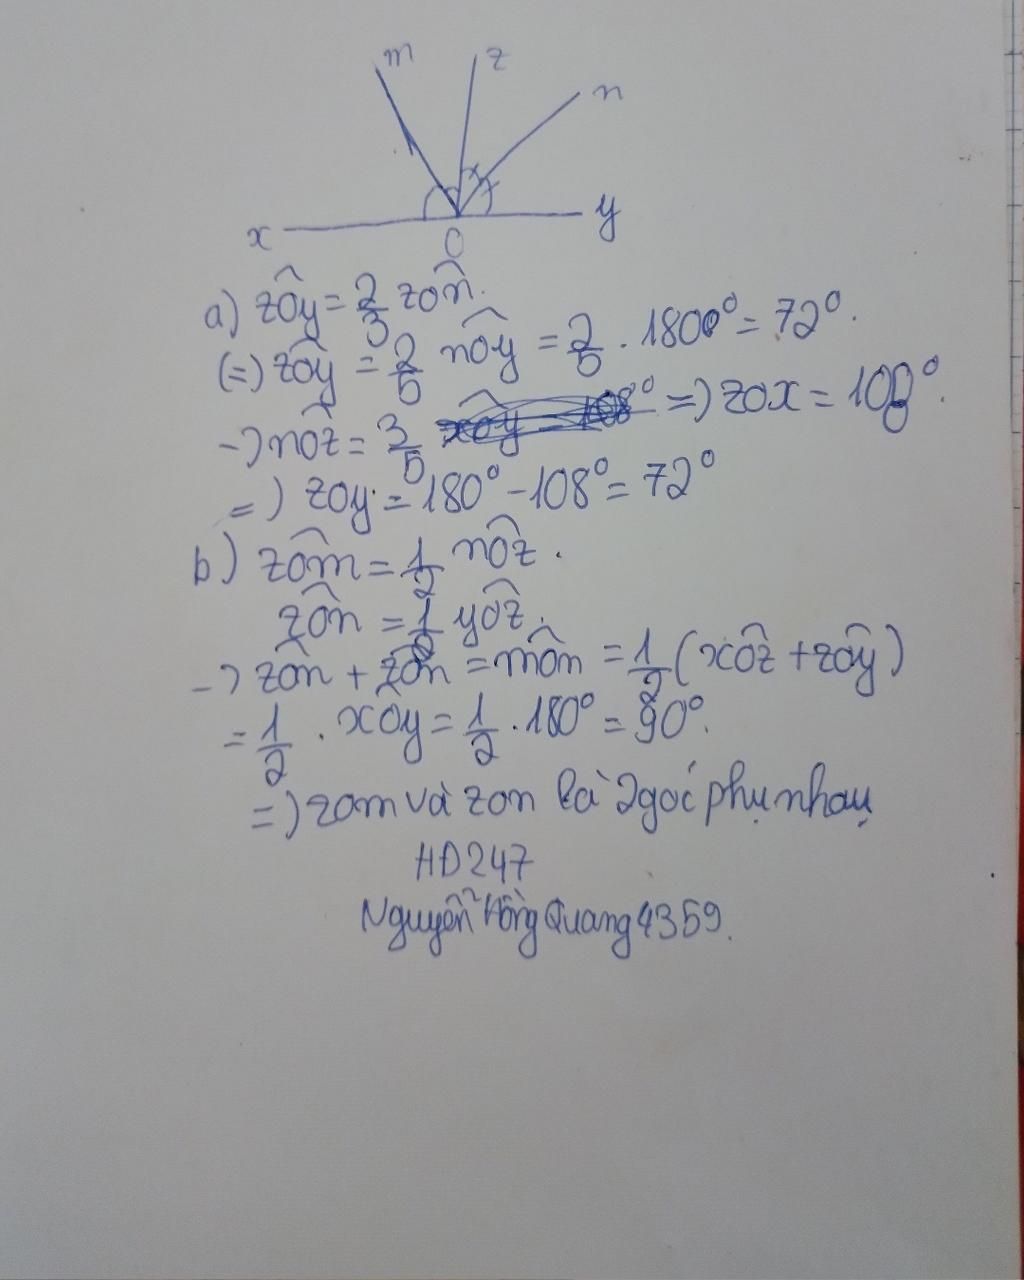 m z n
x O y
a) zôy = 2/3 zôn.
(=) zôy = 2/5 nôy = 2/5 . 180° = 72°.
-) nôz = 3/5 =) zox = 108°.
=) zoy = 180° - 108° = 72°
b) zôm = 1/2 nôz.
zôn = 1/2 yôz.
-) zôn + zôn = môn = 1/2 (xôz + zôy)
= 1/2 . xôy = 1/2 . 180° = 90°.
=) zom và zon là 2 góc phụ nhau
HD247
Nguyễn Hồng Quang 4359.